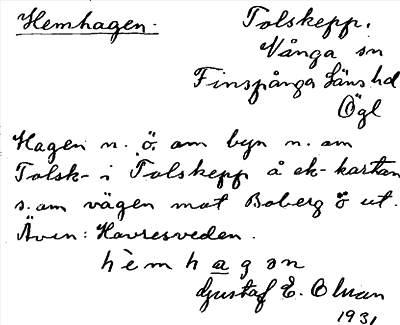 Hemhagen.
Tolskepp.
Vånga sn
Finspånga läns hd
Ögl
Hagen n. ö. om byn n. om
Tolsk- i Tolskepp å ek-kartan
s. om vägen mot Boberg ö ut.
Även: Havresveden.
hèmhagən
Gustaf E. Olwan
1931